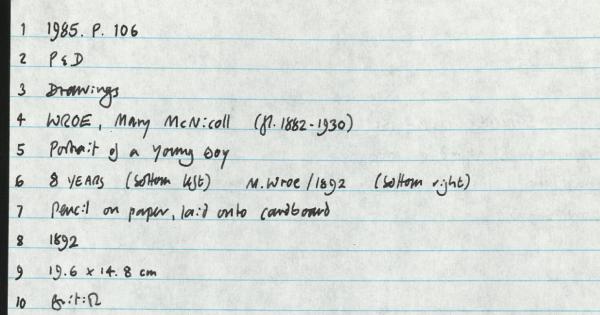 1 1985. P. 106
2 P & D
3 Drawings
4 WROE, Mary McNicoll (fl. 1882-1930)
5 Portrait of a Young Boy
6 8 YEARS (bottom left) M. Wroe / 1892 (bottom right)
7 Pencil on paper, laid onto cardboard
8 1892
9 19.6 x 14.8 cm
10 British